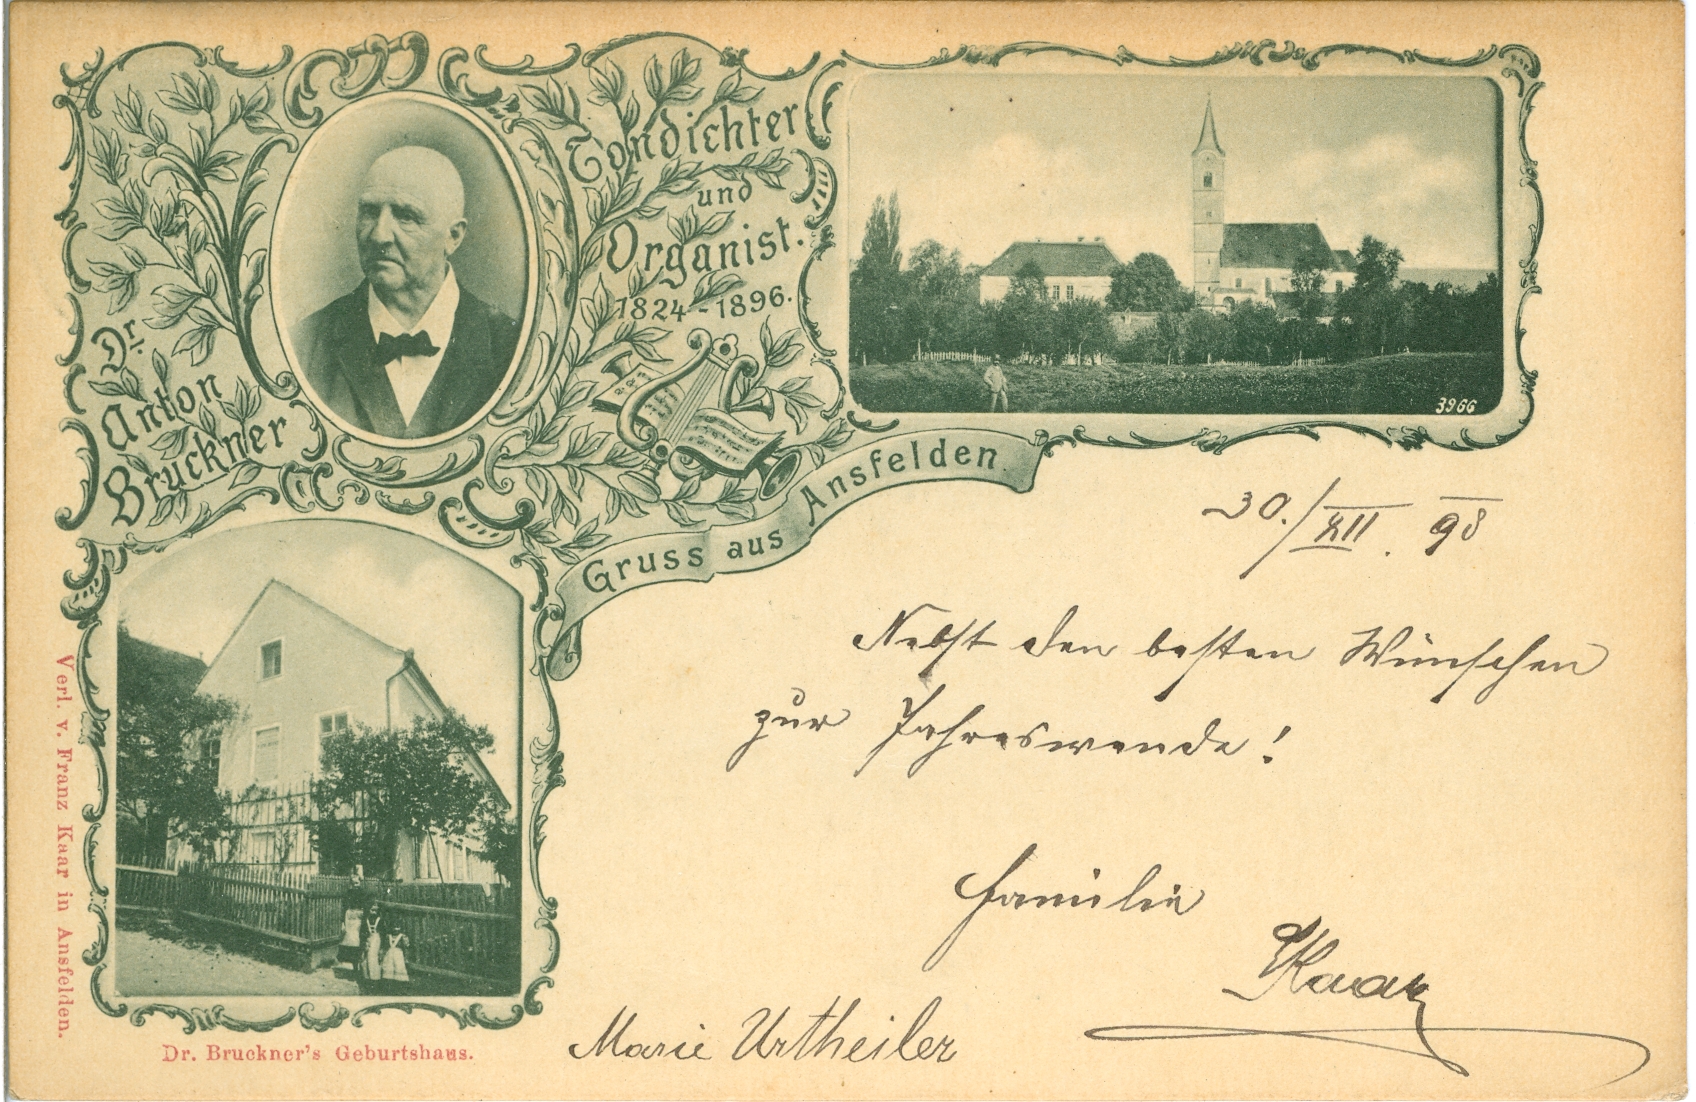 Tondichter
und
Organist.
1824-1896.
Dr.
Anton
Bruckner
3966
Gruss aus Ansfelden.
30./XII. 98
Nebst den besten Wünschen
zur Jahreswende!
Familie
Kaar
Marie Urtheiler
Verl. v. Franz Kaar in Ansfelden.
Dr. Bruckner's Geburtshaus.